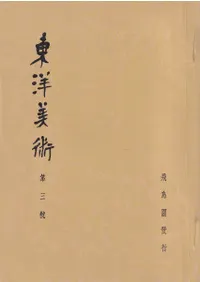 東洋美術
第三號
飛鳥園發行